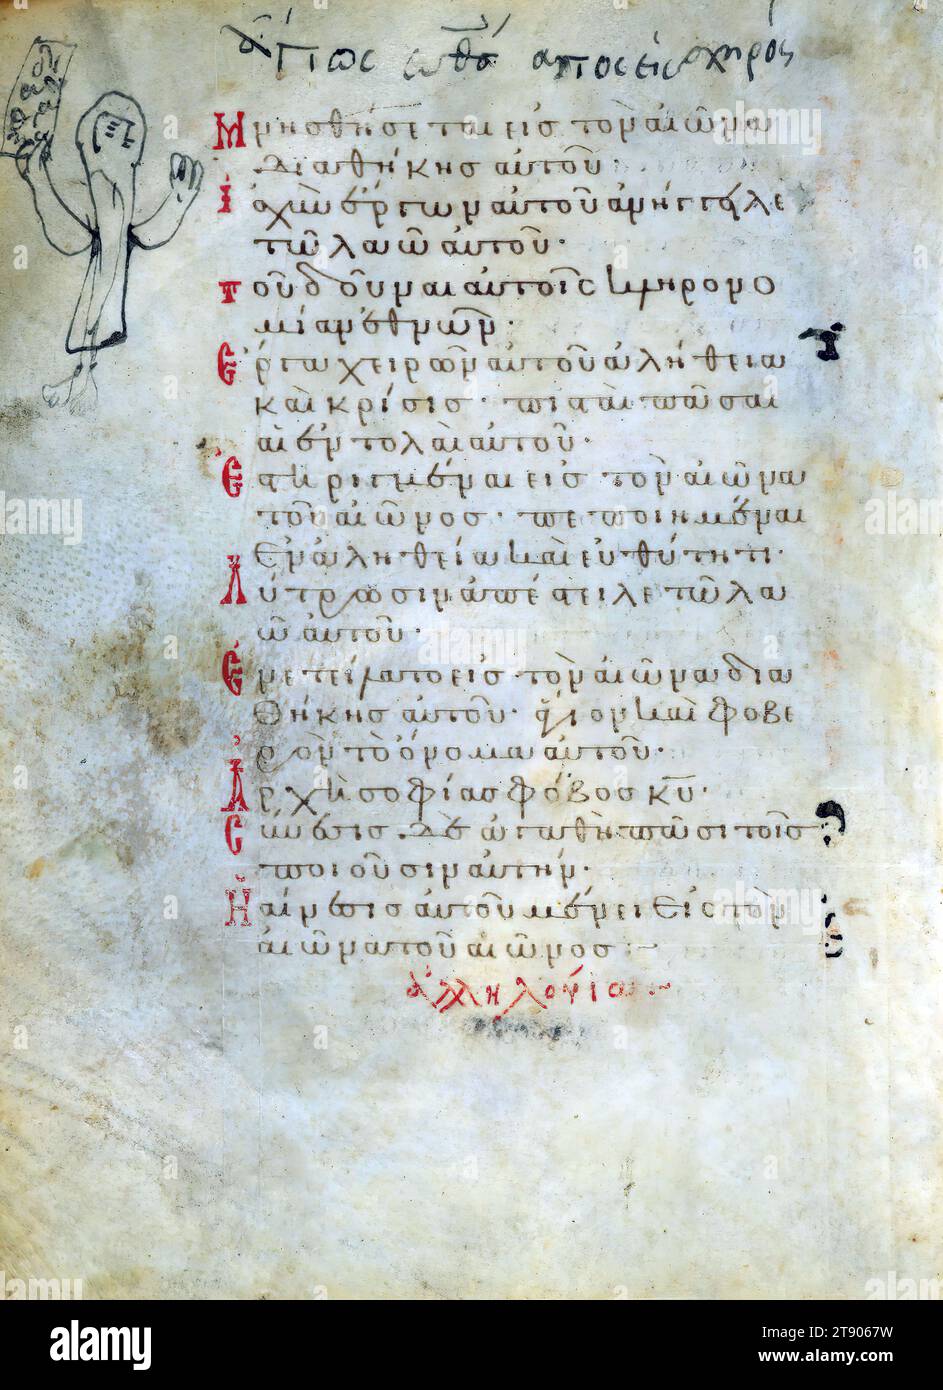 ἅγιος ὠ θσ
Μνησθήσεται εἰς τὸν αἰῶνα
διαθήκης αὐτοῦ·
ἰσχὺν ἔργων αὐτοῦ ἀνήγγειλε
τῶ λαῶ αὐτοῦ·
τοῦ δοῦναι αὐτοῖς κληρονο
μίαν ἐθνῶν·
Ἔργα χειρῶν αὐτοῦ ἀλήθεια
καὶ κρίσις· πισταὶ πᾶσαι
αἱ ἐντολαὶ αὐτοῦ·
Ἐστηριγμέναι εἰς τὸν αἰῶνα
τοῦ αἰῶνος· πεποιημέναι
ἐν ἀληθεία καὶ εὐθύτητι·
Λύτρωσιν ἀπέστειλε τῶ λα
ῶ αὐτοῦ·
Ἐνετείλατο εἰς τὸν αἰῶνα δια
θήκης αὐτοῦ· ἅγιον καὶ φοβε
ρὸν τὸ ὄνομα αὐτοῦ·
Ἀρχὴ σοφίας φόβος κυ·
Σύνεσις δὲ ἀγαθὴ πᾶσι τοῖς
ποιοῦσιν αὐτήν·
Ἡ αἴνεσις αὐτοῦ μένει εἰς τὸν
αἰῶνα τοῦ αἰῶνος:~
ἀλληλούια~
alamy
Image ID: 2T9067W
www.alamy.com